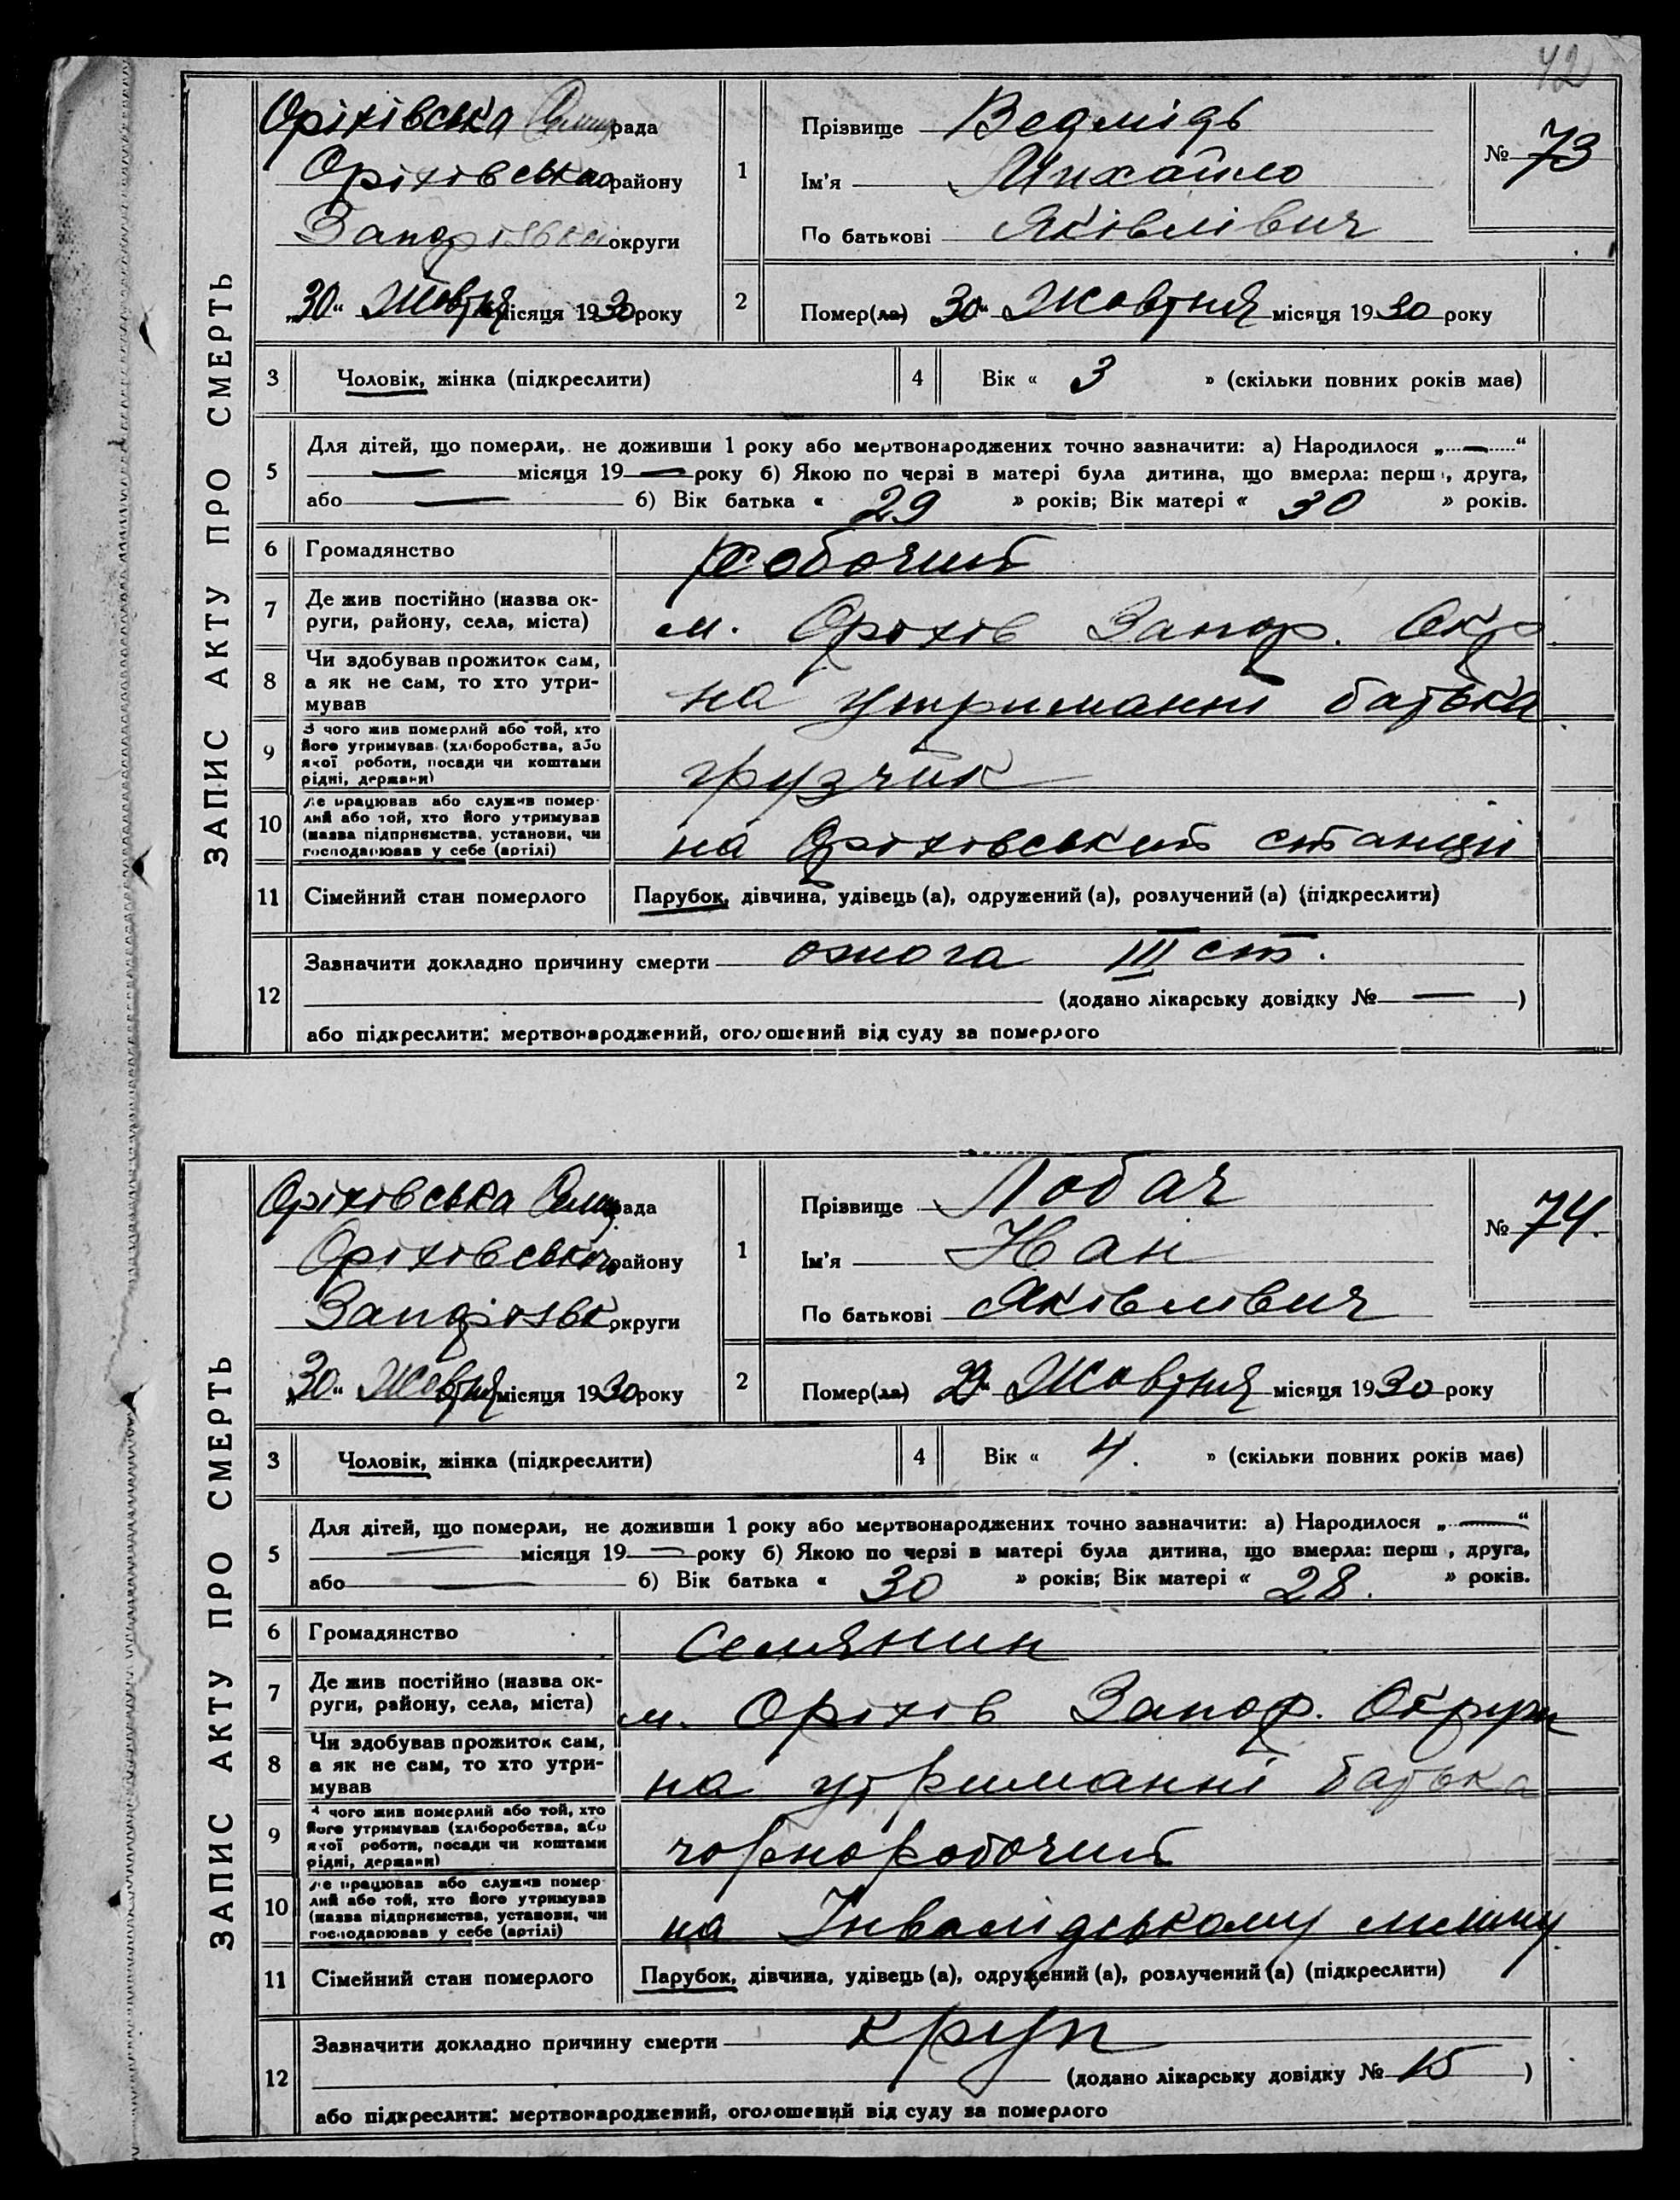 42
ЗАПИС АКТУ ПРО СМЕРТЬ
Оріхівська Селищ рада
Оріхівського району
Запорізька округи
„30“ Жовтня місяця 1930 року
1
Прізвище Ведмідь
Ім'я Михайло
По батькові Яківлівич
№ 73
2
Помер(ла) 30“ Жовтня місяця 1930 року
3 Чоловік, жінка (підкреслити)
4 Вік « 3 » (скільки повних років має)
5 Для дітей, що померли, не доживши 1 року або мертвонароджених точно зазначити: а) Народилося „—“
— місяця 19 — року б) Якою по черзі в матері була дитина, що вмерла: перш, друга,
або — б) Вік батька « 29 » років; Вік матері « 30 » років.
6 Громадянство робочий
7 Де жив постійно (назва ок-
руги, району, села, міста) м. Оріхів Запор. Окр.
8 Чи здобував прожиток сам,
а як не сам, то хто утри-
мував на утриманні батька
9 З чого жив померлий або той, хто
його утримував (хліборобства, або
якої роботи, посади чи коштами
рідні, держави) грузчик
10 Де працював або служив помер-
лий або той, хто його утримував
(назва підприємства, установи, чи
господарював у себе (артілі) на Оріхівський станціі
11 Сімейний стан померлого Парубок, дівчина, удівець (а), одружений (а), розлучений (а) (підкреслити)
12 Зазначити докладно причину смерти ожога III ст.
(додано лікарську довідку № — )
або підкреслити: мертвонароджений, оголошений від суду за померлого
ЗАПИС АКТУ ПРО СМЕРТЬ
Оріхівська Селищ рада
Оріхівського району
Запорізьк округи
„30“ Жовтня місяця 1930 року
1
Прізвище Лобач
Ім'я Іван
По батькові Яківлівич
№ 74.
2
Помер(ла) Жовтня місяця 1930 року
3 Чоловік, жінка (підкреслити)
4 Вік « 4. » (скільки повних років має)
5 Для дітей, що померли, не доживши 1 року або мертвонароджених точно зазначити: а) Народилося „—“
— місяця 19 — року б) Якою по черзі в матері була дитина, що вмерла: перш, друга,
або — б) Вік батька « 30 » років; Вік матері « 28. » років.
6 Громадянство Селянин
7 Де жив постійно (назва ок-
руги, району, села, міста) м. Оріхів Запор. Округи
8 Чи здобував прожиток сам,
а як не сам, то хто утри-
мував на утриманні батька
9 З чого жив померлий або той, хто
його утримував (хліборобства, або
якої роботи, посади чи коштами
рідні, держави) чорноробочий
10 Де працював або служив помер-
лий або той, хто його утримував
(назва підприємства, установи, чи
господарював у себе (артілі) на Інвалідському млину
11 Сімейний стан померлого Парубок, дівчина, удівець (а), одружений (а), розлучений (а) (підкреслити)
12 Зазначити докладно причину смерти круп
(додано лікарську довідку № 15 )
або підкреслити: мертвонароджений, оголошений від суду за померлого